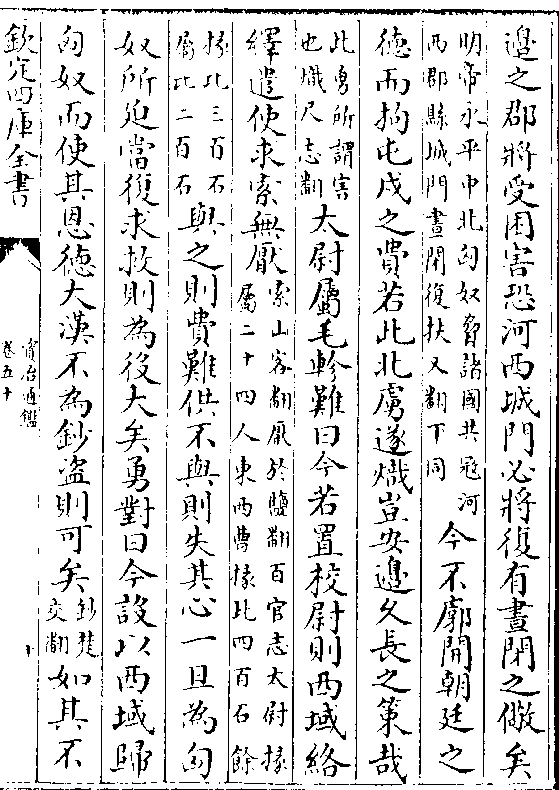 邉之郡將受困害恐河西城門必將復有晝閉之儆矣
明帝永平中北匈奴脅諸國共宼河
西郡縣城門晝閉復扶又翻下同
今不廓開朝廷之
德而拘屯戍之費若此北虜遂熾豈安邉久長之策哉
此勇所謂害
也熾尺志翻
太尉屬毛軫難曰今若置校尉則西域絡
繹遣使求索無厭
索山客翻厭於鹽翻百官志太尉掾
屬二十四人東西曹掾比四百石餘
掾比三百石
屬比二百石
與之則費難供不與則失其心一旦為匈
奴所迫當復求救則為役大矣勇對曰今設以西域歸
匈奴而使其恩德大漢不為鈔盜則可矣
鈔楚
交翻
如其不
欽定四庫全書
資治通鑑
卷五十